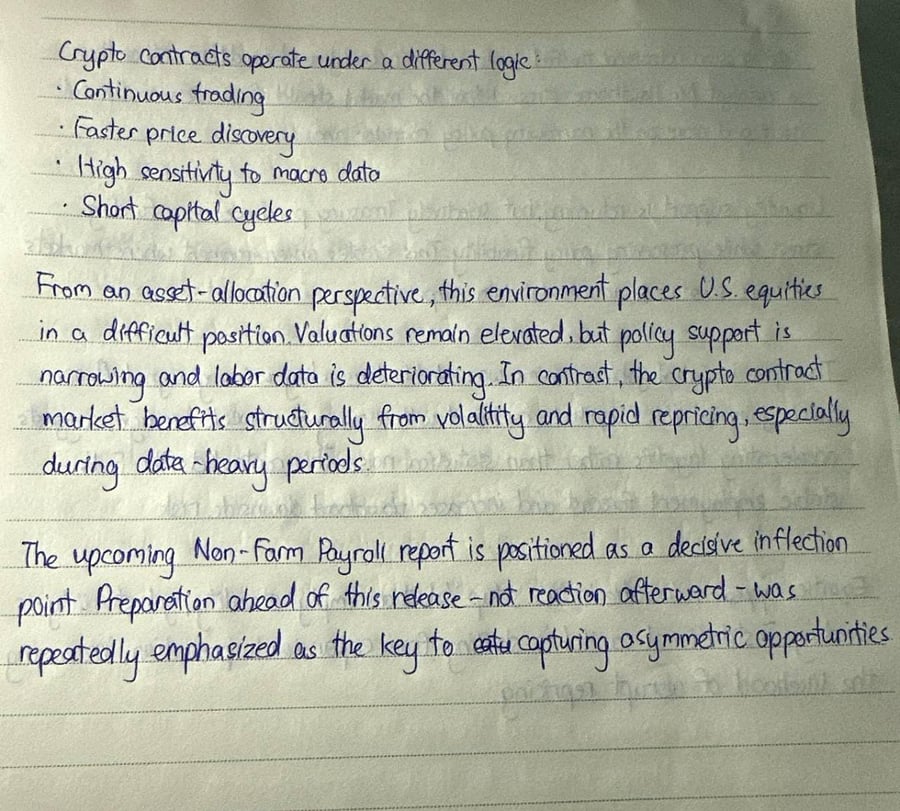 Crypto contracts operate under a different logic:
· Continuous trading
· Faster price discovery
· High sensitivity to macro data
· Short capital cycles
From an asset-allocation perspective, this environment places U.S. equities
in a difficult position. Valuations remain elevated, but policy support is
narrowing and labor data is deteriorating. In contrast, the crypto contract
market benefits structurally from volalitity and rapid repricing, especially
during data-heavy periods.
The upcoming Non-Farm Payroll report is positioned as a decisive inflection
point. Preparation ahead of this release - not reaction afterward - was
repeatedly emphasized as the key to capturing asymmetric opportunities